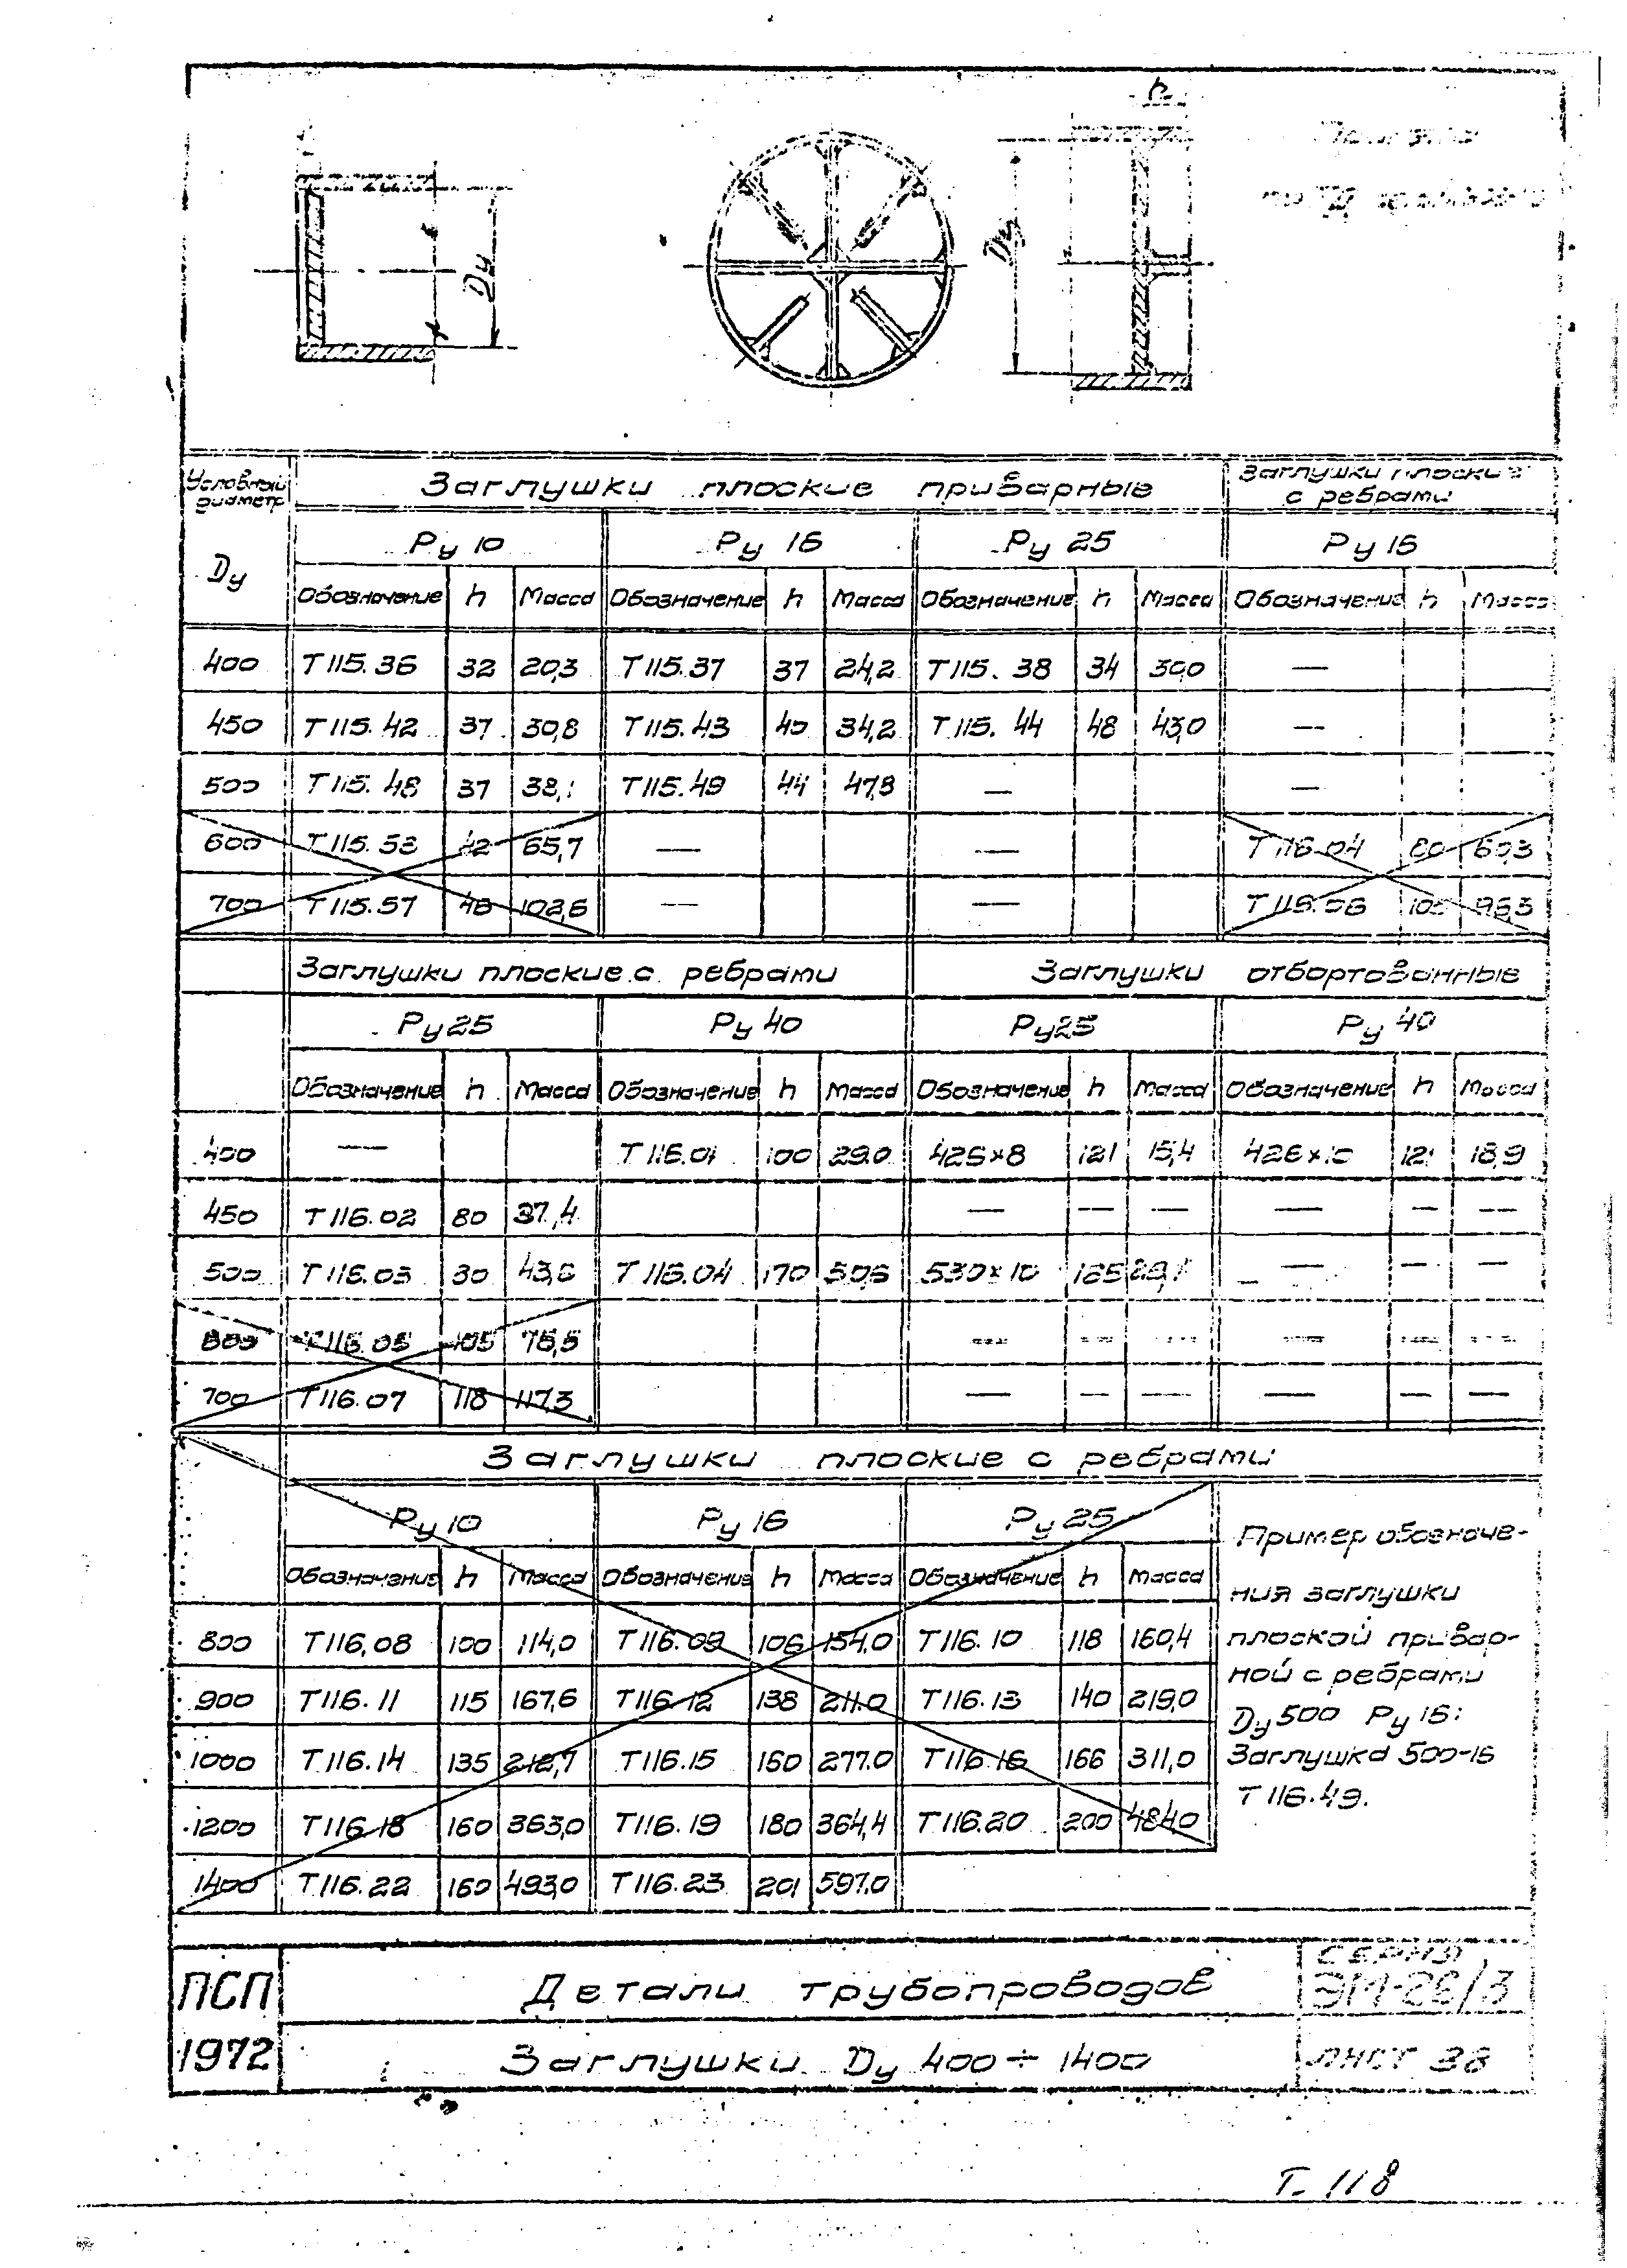 h
Dy
Dy
Условный диаметр Dy | Заглушки плоские приварные | Заглушки плоские с ребрами
Ру 10 | Ру 16 | Ру 25 | Ру 16
Обозначение h Масса | Обозначение h Масса | Обозначение h Масса | Обозначение h Масса
400 | Т 115.36 | 32 | 20,3 | Т 115.37 | 37 | 24,2 | Т 115.38 | 34 | 30,0 | —
450 | Т 115.42 | 37 | 30,8 | Т 115.43 | 40 | 34,2 | Т 115.44 | 48 | 43,0 | —
500 | Т 115.48 | 37 | 38,1 | Т 115.49 | 44 | 47,8 | — | —
600 | Т 115.53 | 42 | 65,7 | — | — | Т 116.04 | 80
700 | Т 115.57 | — | — | Т 116.06 | 105 | 96,5
Заглушки плоские с ребрами | Заглушки отбортованные
Ру 25 | Ру 40 | Ру 25 | Ру 40
Обозначение h Масса | Обозначение h Масса | Обозначение h Масса | Обозначение h Масса
400 | — | Т 116.01 | 100 | 29,0 | 426×8 | 121 | 15,4 | 426×10 | 121 | 18,9
450 | Т 116.02 | 80 | 37,4 | — — — | — — —
500 | Т 116.03 | 80 | 43,6 | Т 116.04 | 170 | 50,6 | 530×10 | — — —
Т 116.05 | 105 | — — — | — — —
700 | Т 116.07 | 118 | 117,3 | — — — | — — —
Заглушки плоские с ребрами
Ру 10 | Ру 16 | Ру 25
Обозначение h Масса | Обозначение h Масса | Обозначение h Масса
800 | Т 116,08 | 100 | 114,0 | Т 116.09 | 106 | 154,0 | Т 116.10 | 118 | 160,4
900 | Т 116.11 | 115 | 167,6 | Т 116.12 | 138 | 211,0 | Т 116.13 | 140 | 219,0
1000 | Т 116.14 | 135 | 212,7 | Т 116.15 | 160 | 277,0 | Т 116.16 | 166 | 311,0
1200 | Т 116.18 | 160 | 363,0 | Т 116.19 | 180 | 364,4 | Т 116.20 | 200 | 484,0
1400 | Т 116.22 | 160 | 493,0 | Т 116.23 | 201 | 597,0
Пример обозначе-
ния заглушки
плоской привар-
ной с ребрами
Dy 500 Ру 16:
Заглушка 500-16
Т 116.49.
ПСП
1972
Детали трубопроводов
Заглушки Dy 400 ÷ 1400
СЕРИЯ
ЭМ-26/3
ЛИСТ 38
Т. 118